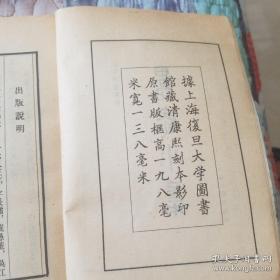 據上海復旦大学圖書
館藏清康熙刻本影印
原書版框高一九八毫
米寬一三八毫米
出版説明